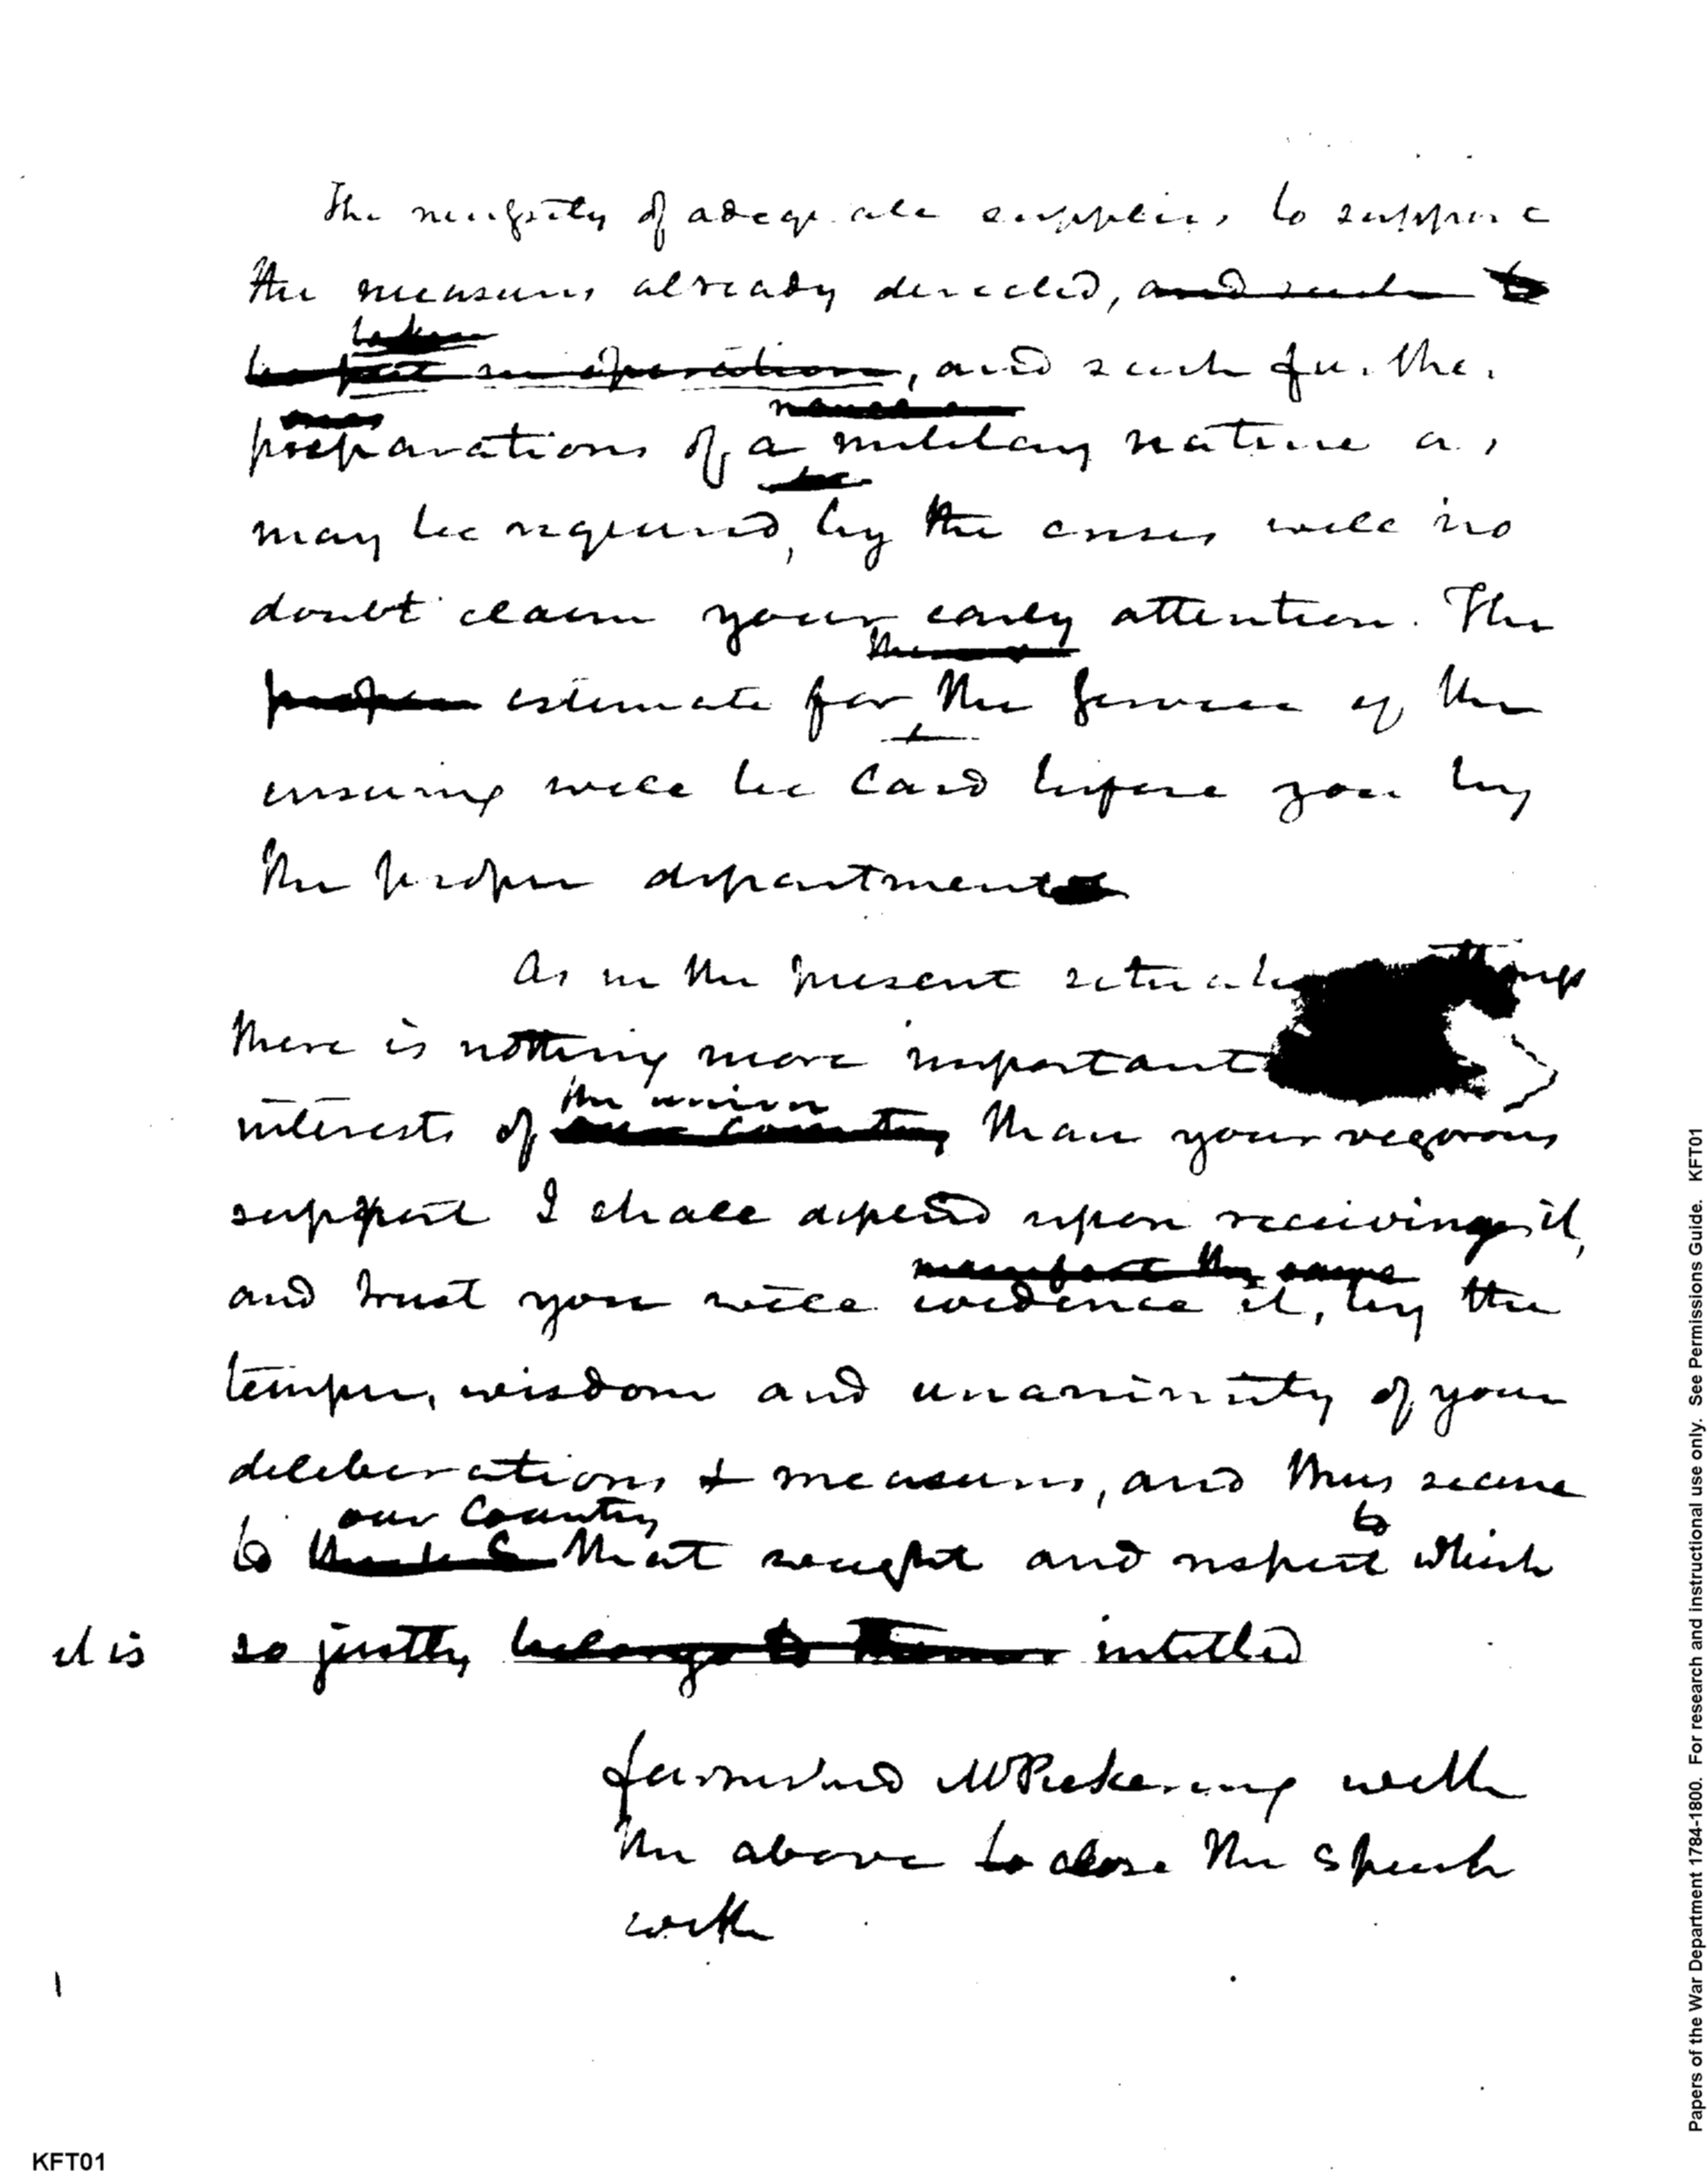 The necessity of adequate supplies to support
the measures already directed, and such to
taken
be put in operation, and such further
preparations of a military nature as
may be required, by the crises will no
doubt claim your early attention. The
proper estimate for the service of the
ensuing will be laid before you by
the proper department
As in the present situation things
there is nothing more important
the union
interests of our country than your vigorous
support I shall depend upon receiving it,
manifest the same
and trust you will evidence it, by the
temper, wisdom and unanimity of your
deliberations & measures, and thus secure
our Country to
to that weight and respect which
it is so justly belongs to intitled
furnished Mr Pickering with
the above to close the speech
with
KFT01
Papers of the War Department 1784-1800. For research and instructional use only. See Permissions Guide. KFT01